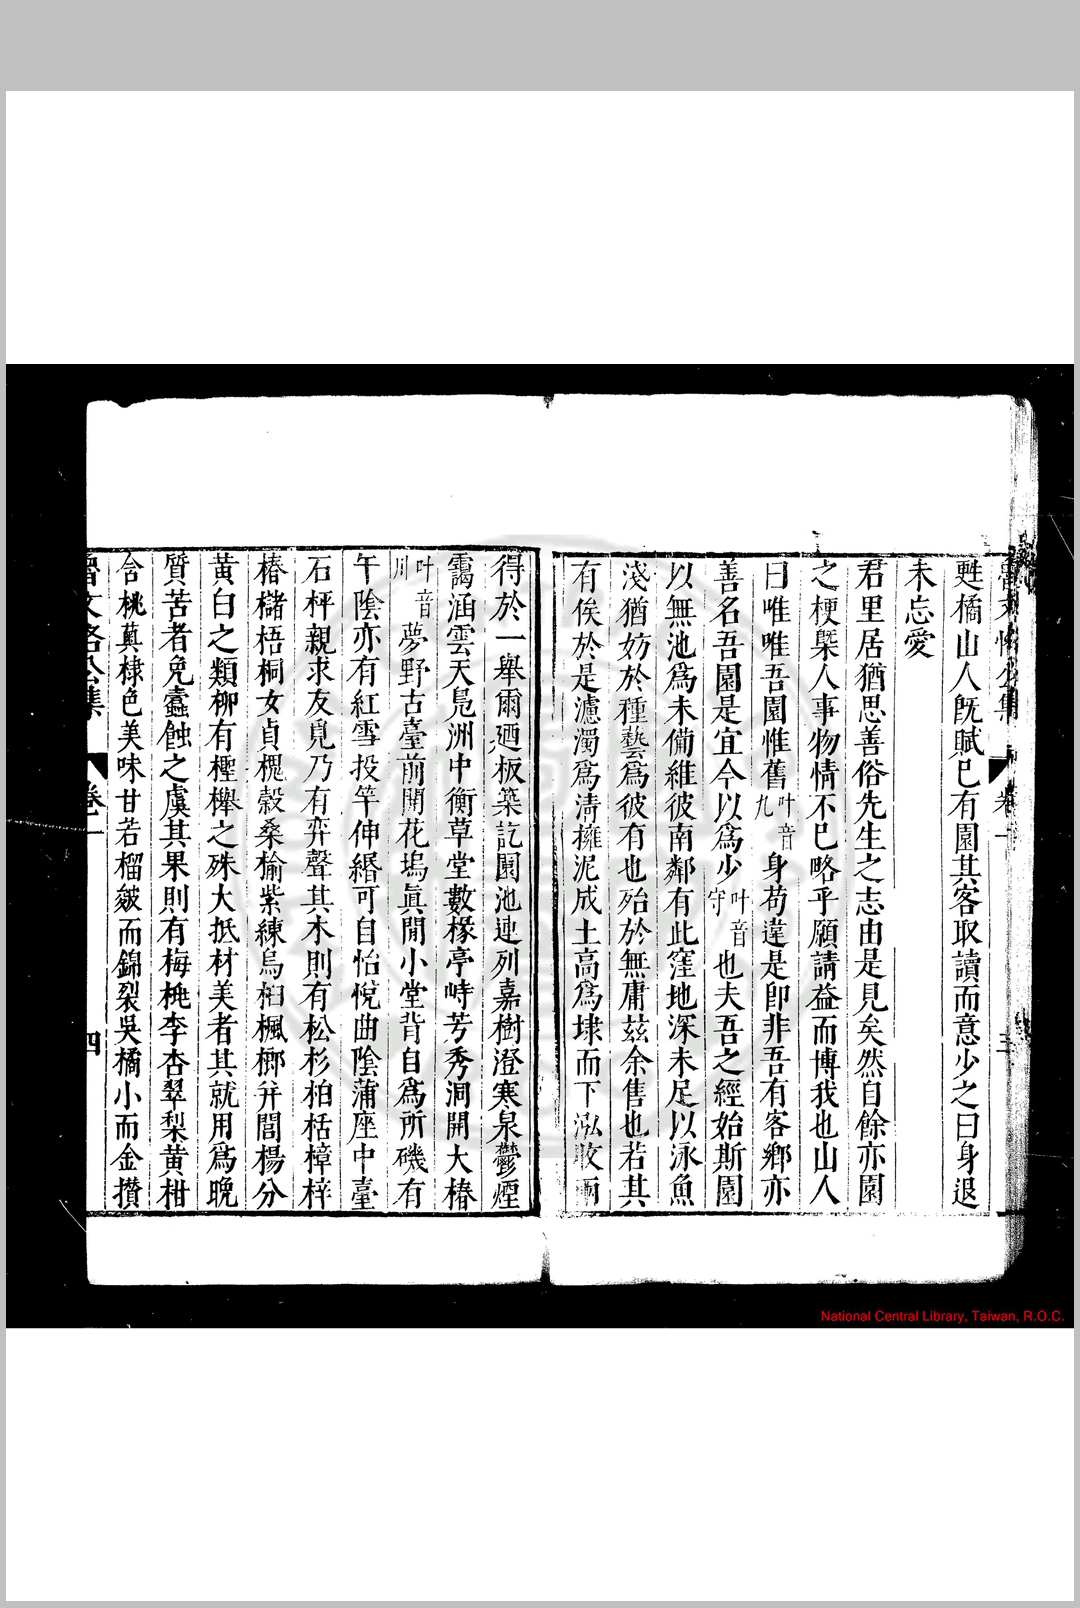 甦橘山人既賦已有園其客取讀而意少之曰身退
未忘愛
君里居猶思善俗先生之志由是見矣然自餘亦園
之梗槩人事物情不已略乎願請益而博我也山人
曰唯唯吾園惟舊叶音九身苟違是卽非吾有客鄉亦
善名吾園是宜今以爲少叶音守也夫吾之經始斯園
以無池爲未備維彼南鄰有此窪地深未足以泳魚
淺猶妨於種藝爲彼有也殆於無庸茲余售也若其
有俟於是濾濁爲清擁泥成土高爲埭而下泓收兩
得於一舉爾廼板築訖圓池連列嘉樹澄寒泉鬱煙
靄涵雲天鳬洲中衡草堂數椽亭峙芳秀洞開大椿
叶音川夢野古臺前開花塢眞閒小堂背自爲所磯有
午陰亦有紅雪投竿伸緡可自怡悅曲陰蒲座中臺
石枰親求友鳬乃有弈聲其木則有松杉柏栝樟梓
椿櫧梧桐女貞槐榖桑榆紫練烏桕楓櫛幷閭楊分
黃白之類柳有檉櫸之殊大抵材美者其就用爲晚
質苦者免蠹蝕之虞其果則有梅桃李杏翠梨黃柑
含桃蕻棣色美味甘若榴皴而錦裂吳橘小而金攢
曾文恪公集 卷一 四